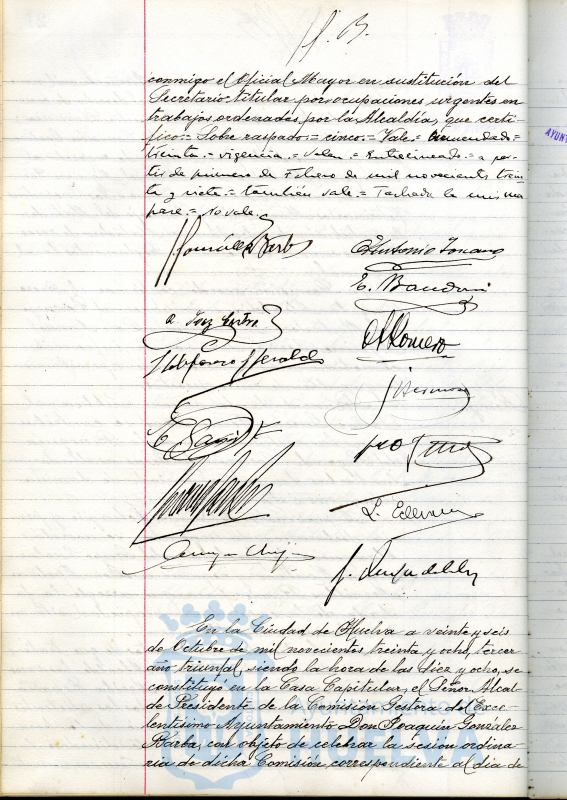 conmigo el Oficial Mayor en sustitución del
Secretario titular por ocupaciones urgentes en
trabajos ordenados por la Alcaldia, que certi-
fico.= Sobre raspado.= cinco.= Vale.= Enmendado.=
treinta.= vigencia.= Valen.= Entrelineado.= a par-
tir de primero de Febrero de mil novecientos trein-
ta y siete.= también vale.= Tachado la misma
pare.= no vale.
J. González Barba
Antonio Toscano
E. Bauduin
Ildefonso Gerald
A. Romero
En la Ciudad de Huelva a veinte y seis
de Octubre de mil novecientos treinta y ocho, tercer
año triunfal, siendo la hora de las diez y ocho, se
constituyó en la Casa Capitular, el Señor Alcal-
de Presidente de la Comisión Gestora del Exce-
lentísimo Ayuntamiento Don Joaquín González
Barba, con objeto de celebrar la sesión ordina-
ria de dicha Comisión correspondiente al dia de
AYUNT